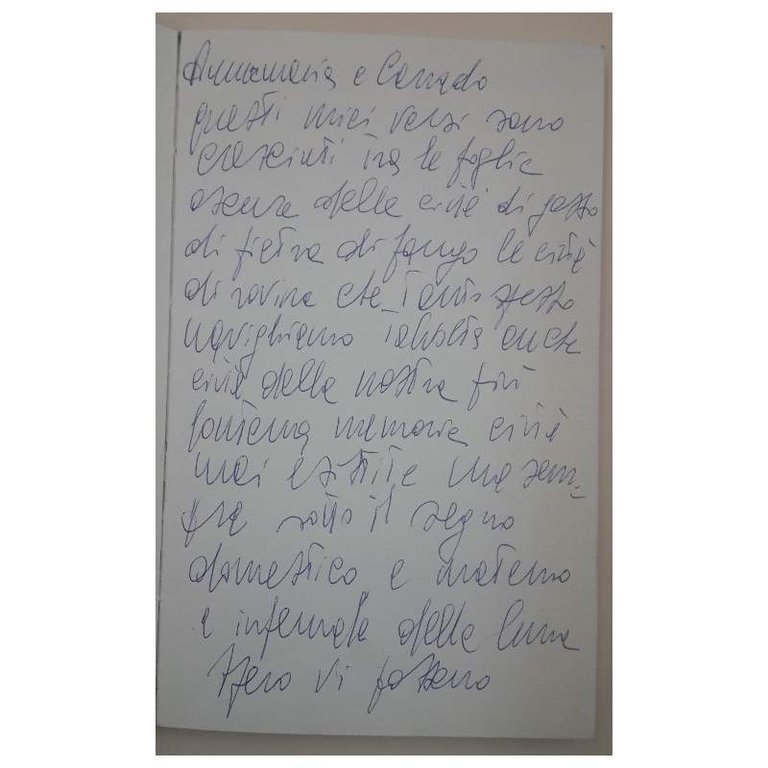 Annamaria e Corrado
questi miei versi sono
cresciuti tra le foglie
oscure delle città di gesso
di pietra di fango le città
di rovina che tanto spesso
navighiamo talvolta anche
città della nostra più
lontana memoria città
mai esistite ma sem-
pre sotto il segno
domestico e materno
e infernale della luna
spero vi possano